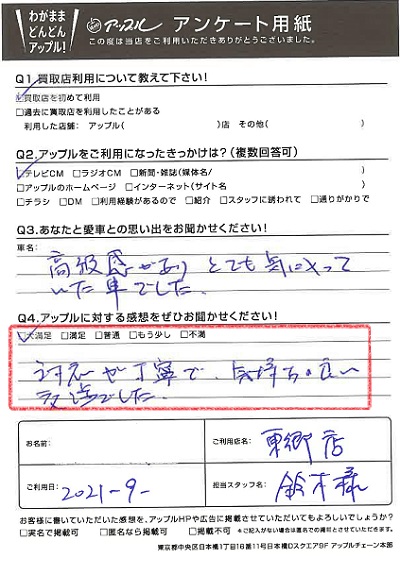 わがまま
どんどん
アップル！
アップル アンケート用紙
この度は当店をご利用いただきありがとうございました。
Q1.買取店利用について教えて下さい！
☑買取店を初めて利用
□過去に買取店を利用したことがある
利用した店舗： アップル(　　　　)店 その他(　　　　)
Q2.アップルをご利用になったきっかけは？(複数回答可)
☑テレビCM □ラジオCM □新聞・雑誌(媒体名/　　　　)
□アップルのホームページ □インターネット(サイト名　　　　)
□チラシ □DM □利用経験があるので □紹介 □スタッフに誘われて □通りがかりで
Q3.あなたと愛車との思い出をお聞かせください！
車名：
高級感があり とても気に入って
いた車でした。
Q4.アップルに対する感想をぜひお聞かせください！
☑満足 □満足 □普通 □もう少し □不満
対応が丁寧で、気持ちの良い
でした。
お名前：
ご利用店名：
東郷店
ご利用日：
2021-9-
担当スタッフ名：
鈴木様
お客様に書いていただいた感想を、アップルHPや広告に掲載させていただいてもよろしいでしょうか？
□実名で掲載可 □匿名なら掲載可 □掲載不可 ※ご記入がない場合は匿名での掲載可とさせていただきます。
東京都中央区日本橋1丁目16番11号日本橋Dスクエア9F アップルチェーン本部